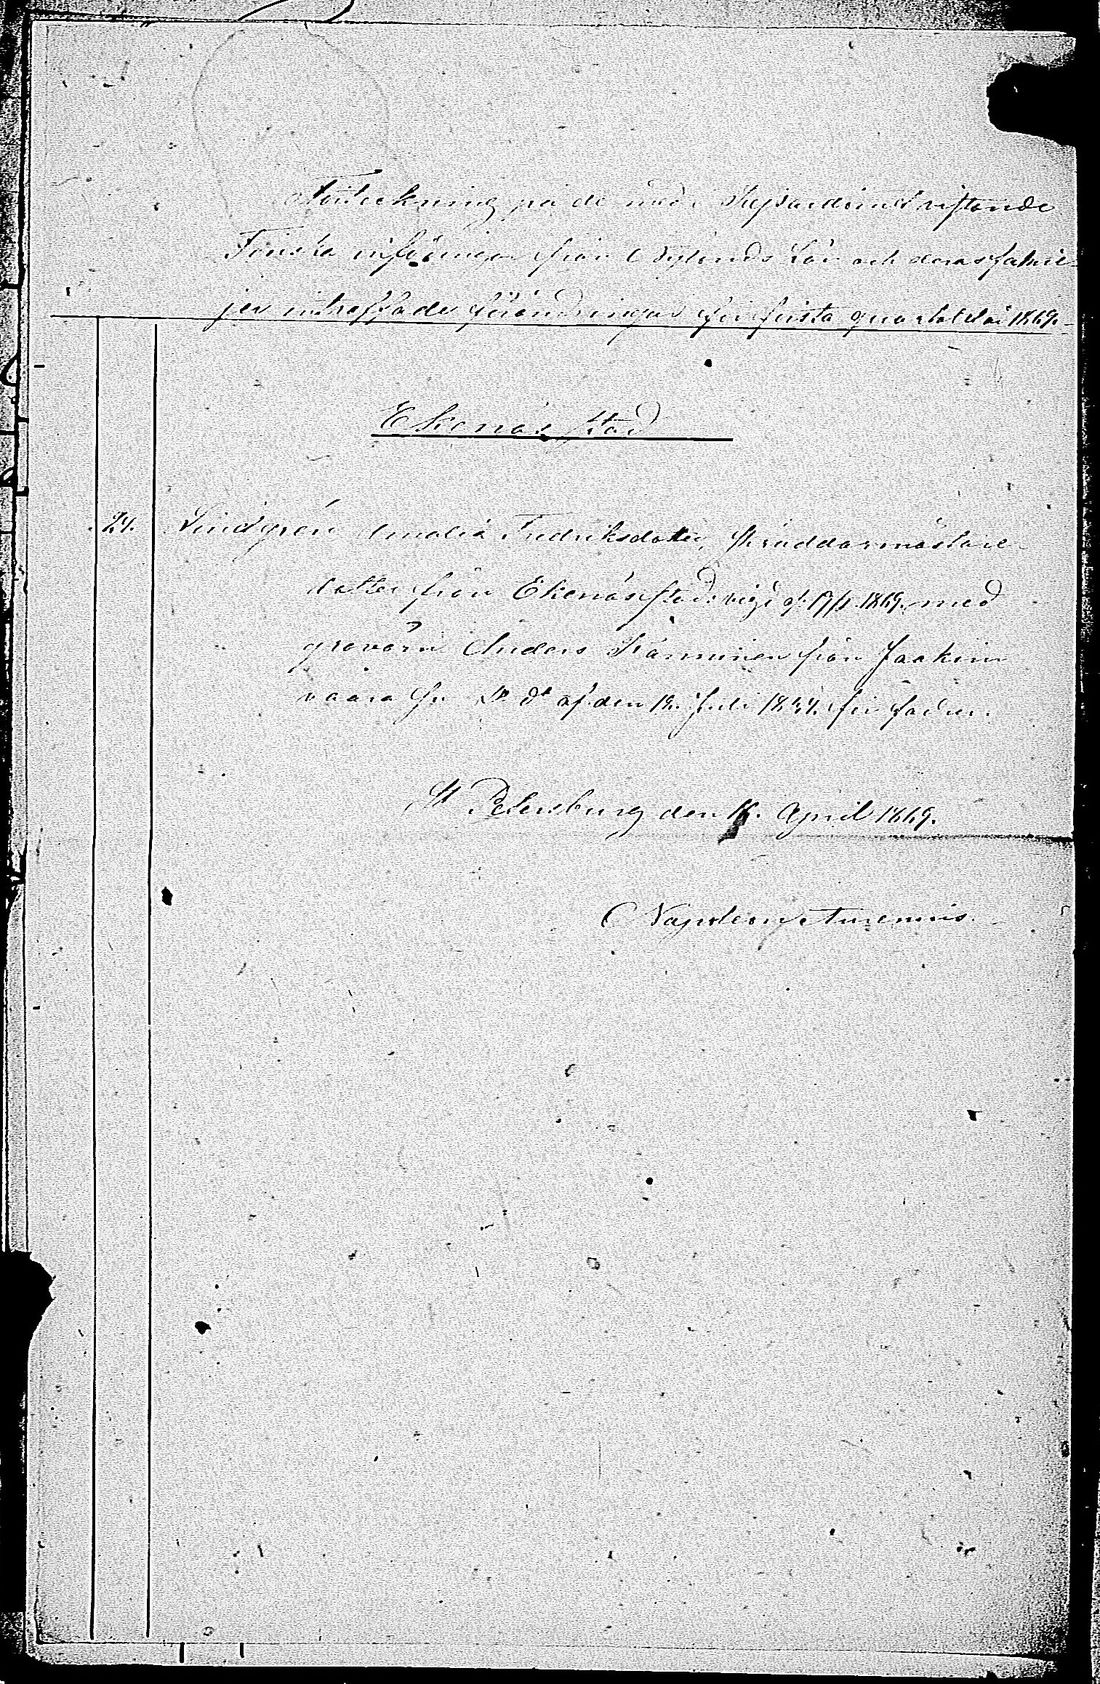 Förteckning på de med i Kejsardömet vistande
Finska infödingar från Nylands Län och deras famil-
jer inträffade förändringar för första quartalet år 1869.
Ekenäs stad
24. Lindgrén Amalia Fredriksdotter, skräddarmästare
dotter från Ekenäs stad: vigd d. 19/1 1869. med
Anders Karminen från Jaakim
vaara af den 12 Juli
St Petersburg den 16. April 1869.
Napoleon